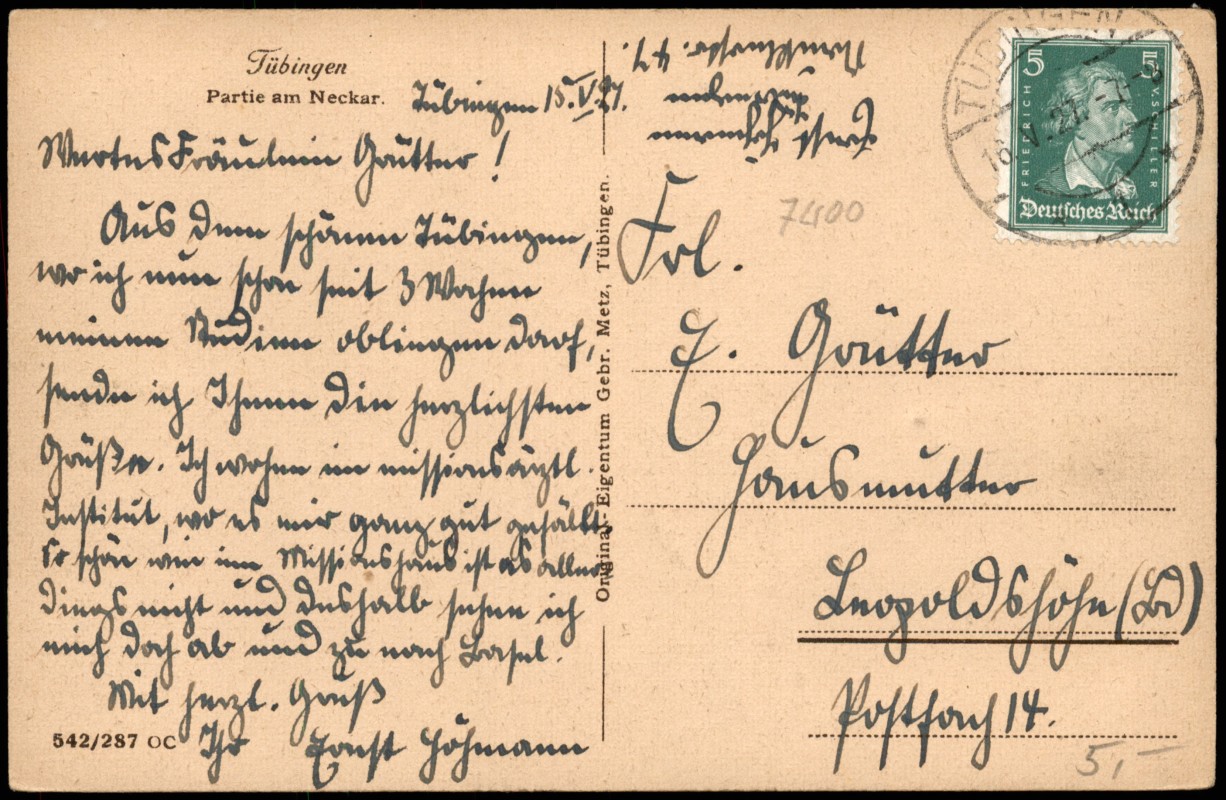 Tübingen
Partie am Neckar.
Tübingen 15. V. 27.
Wertes Fräulein Grütter!
Aus dem schönen Tübingen,
wo ich nun schon seit 3 Wochen
meinen Studien obliegen darf,
sende ich Ihnen die herzlichsten
Grüße. Ich wohne im missionsärztl.
Institut, wo es mir ganz gut gefällt.
So schön wie im Missionshaus ist es aller
dings nicht und deshalb sehne ich
mich doch ab und zu nach Basel.
Mit herzl. Gruß
Ihr Ernst Höhmann
542/287 OC
Original-Eigentum Gebr. Metz, Tübingen.
Ernst Höhmann
Tübingen
47.
TÜBINGEN
16. V. 27.
5 5
FRIEDRICH V. SCHILLER
Deutsches Reich
7400
Frl.
E. Grütter
Hausmutter
Leopoldshöhe (Bd)
Postfach 14.
5,-